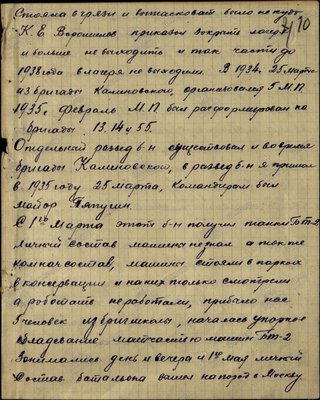 Стояла в грязи и вытаскивать было не куда
210
К. Е. Ворошилов приказал закрыть лагерь
и больше не выходить и так части до
1938 года в лагеря не выходили. В 1934г. 25 марта
из бригады Калиновского, организовался 5 М. П.
1935г. Февраль М. П. был расформирован на
бригады 13. 14 и 55.
Отдельный развед б-н существовал и во время
бригады Калиновской, в развед б-н я пришол
в 1935 году 25 марта, командиром был
майор Пяпугин.
С 1го Марта этот б-н получил танки БТ-2
личный состав машины не знал а так же
комначсостав, машины стояли в парках
в консервации и на них только смотрели
а работать не работали, прибыло нас
5 человек из бригшколы, началась упорное
овладевание матчастью машин БТ-2
Занимались день и вечера и 1го мая личный
состав батальона вышел на парад в Москву.